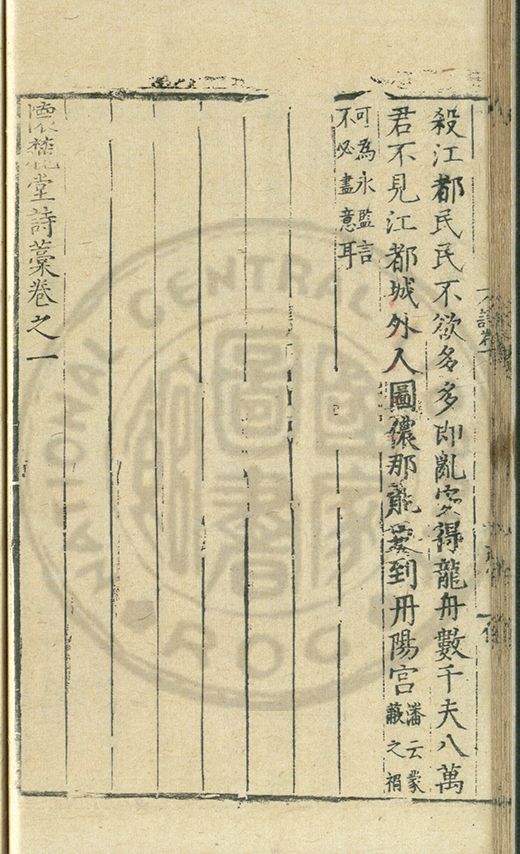 殺江都民民不欲多多即亂安得龍舟數千夫八萬
君不見江都城外人圖儂那能要到丹陽宮潘云蒙
蔽之禍
可為永監言
不必盡意耳
懷楚堂詩藁卷之一
NATIONAL CENTRAL